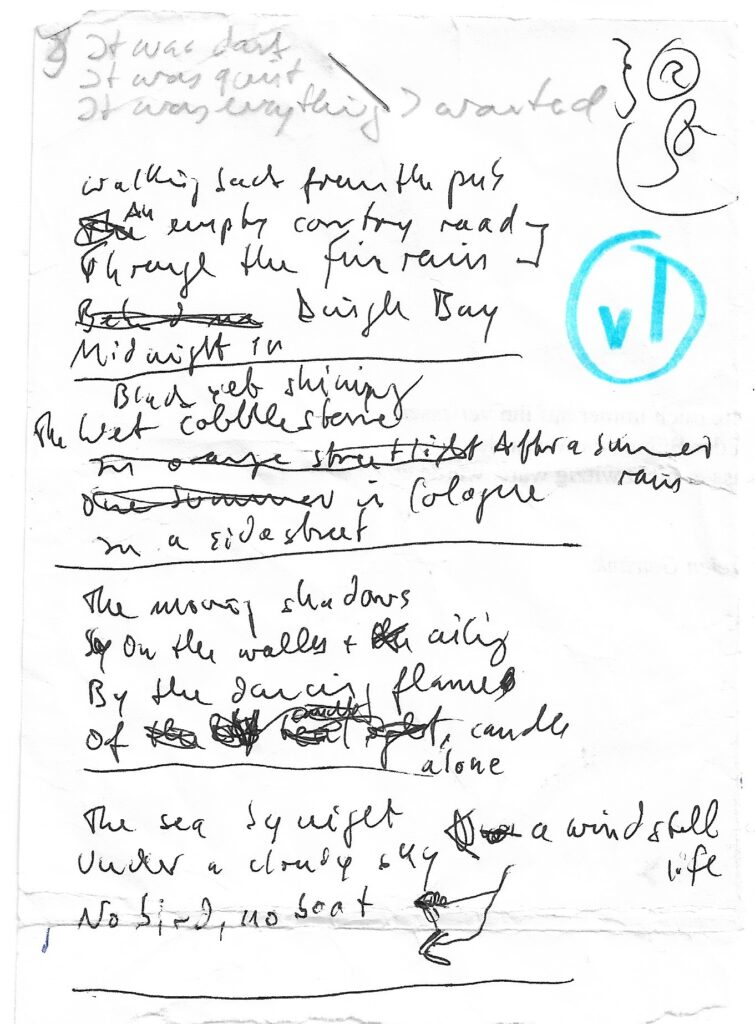 It was dark
It was quit
It was everything I wanted
R
walking back from the pub
An empty contry road
Through the fine rain
Dingle Bay
Midnight in
Black web shining
The Wet cobblestone
in orange streetlight After a summer
rain
One Summer in Cologne
in a sidestreet
The moving shadows
On the walls + ceiling
By the dancing flame
Of candle
alone
The sea by night a windstill
life
Under a cloudy sky
No bird, no boat
v1